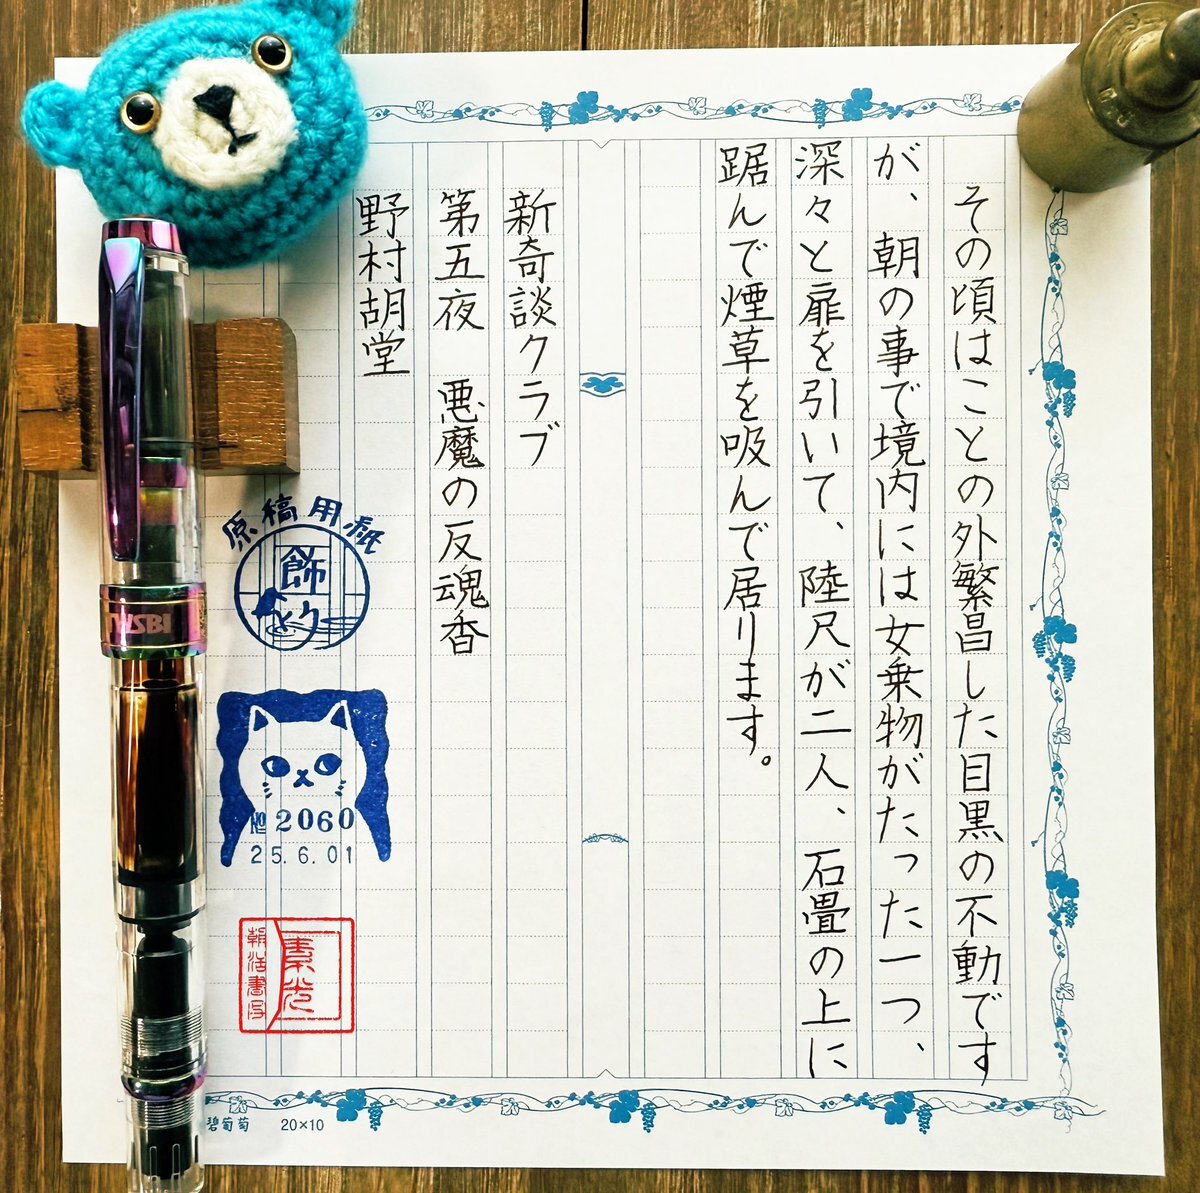 その頃はことの外繁昌した目黒の不動です
が、朝の事で境内には女乗物がたった一つ、
深々と扉を引いて、陸尺が二人、石畳の上に
踞んで煙草を吸んで居ります。
新奇談クラブ
第五夜　悪魔の反魂香
野村胡堂
原稿用紙
飾
№2060
25.6.01
朝活書写
素光
TWSBI
碧葡萄
20×10